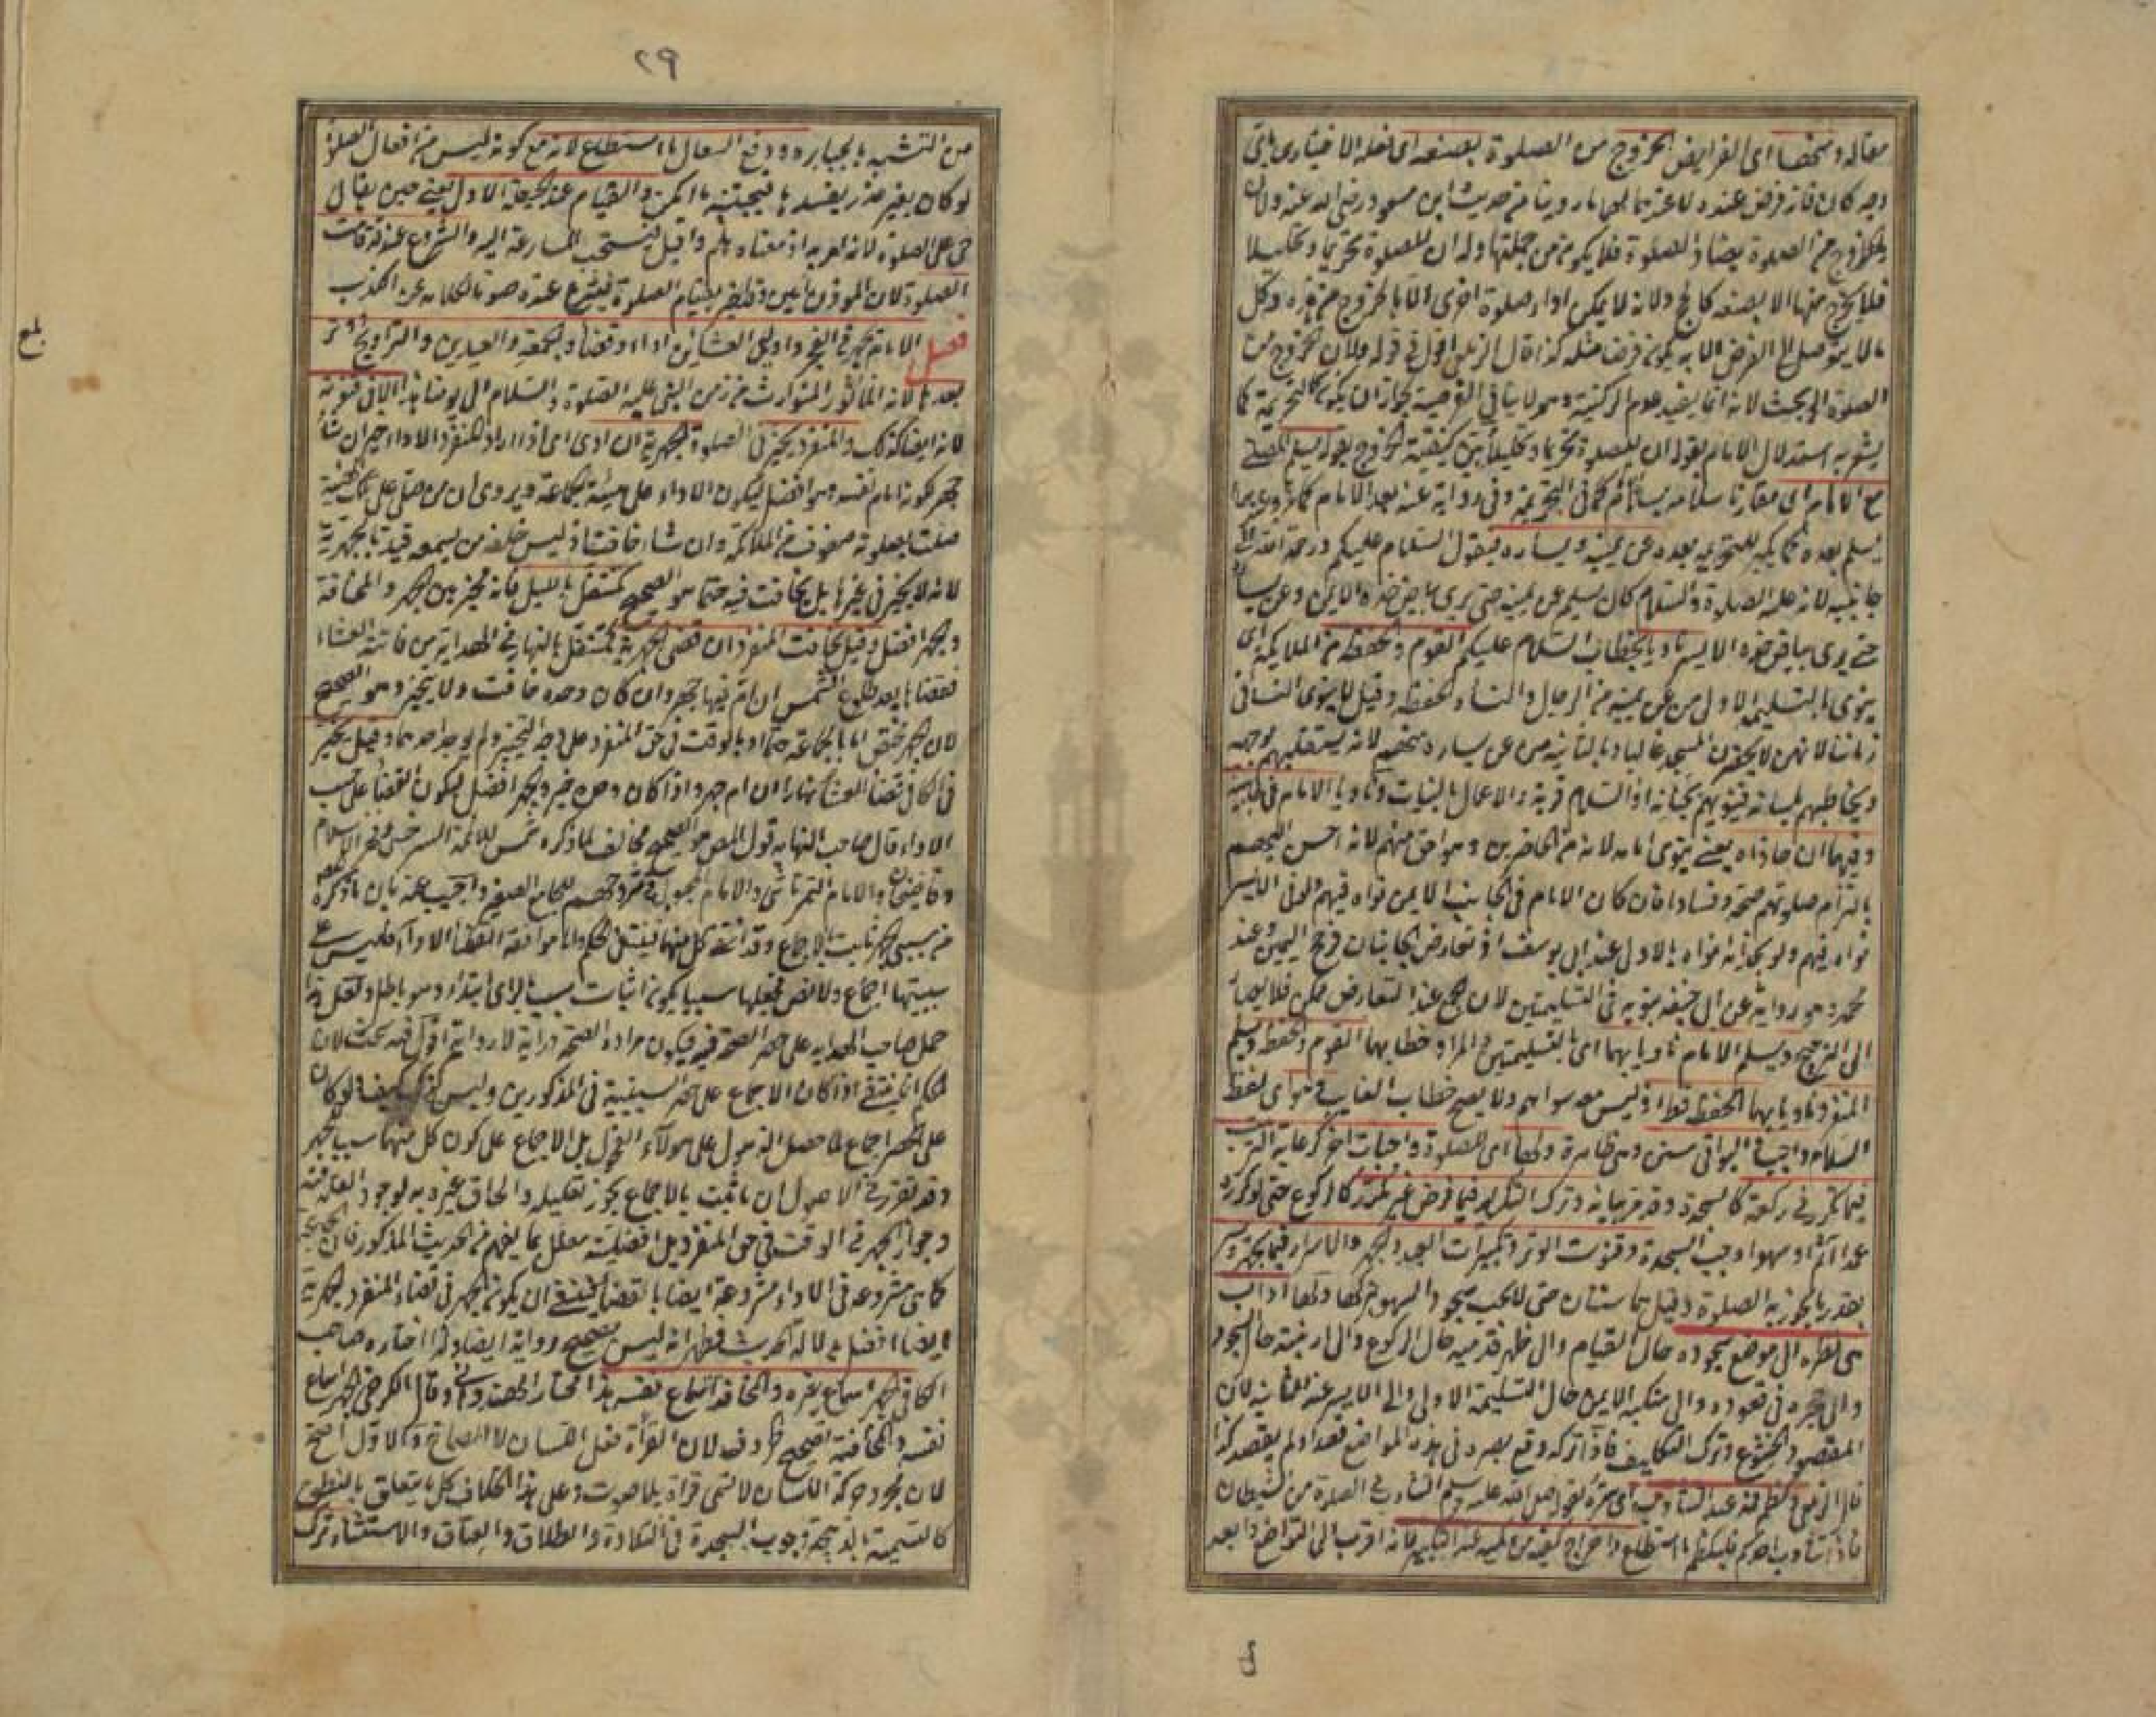 مقاله ومنها اى الفرايض الخروج من الصلوة بصنعه اى فعله الاختيارى باى
وجه كان فانه فرض عنده لا عندهما لهما ما روينا من حديث ابن مسعود رضى الله عنه ولان
الخروج من الصلوة يضاد الصلوة فلا يكون من جملتها وله ان للصلوة تحريما وتحليلا
فلا يخرج منها الا بصنعه كالحج ولانه لا يمكن اداء صلوة اخرى الا بالخروج من هذه وكل
ما لا يتوصل الى الفرض الا به يكون فرضا مثله كذا قال الزيلعى اقول فى قوله ولان الخروج من
الصلوة الخ بحث لانه انما يفيد عدم الركنية وهو لا ينافى الفرضية لجواز ان يكون كالتحريمة كما
يشعر به استدلال الامام بقوله ان للصلوة تحريما وتحليلا بين كيفية الخروج بقوله يسلم المصلى
مع الامام اى مقارنا سلامه بسلامه كما فى التحريمة وفى رواية عنه بعد الامام كما
يسلم بعده كما يكبر للتحريمة بعده عن يمينه ويساره فيقول السلام عليكم ورحمة الله الى
جانبيه لانه عليه الصلوة والسلام كان يسلم عن يمينه حتى يرى بياض خده الايمن وعن يساره
حتى يرى بياض خده الايسر ناويا بخطاب السلام عليكم القوم والحفظة من الملائكة اى
ينوى بالتسليمة الاولى من عن يمينه من الرجال والنساء والحفظة وقيل لا ينوى النساء فى
زماننا لانهن لا يحضرن المسجد غالبا وبالثانية من عن يساره منهم لانه يستقبلهم بوجهه
ويخاطبهم بلسانه فينويهم بجنانه اذ السلام قربة والاعمال بالنيات وناويا الامام فى جانبه
وفيهما ان حاذاه يعنى ينوى امامه لانه من الحاضرين وهو احق منهم لانه احسن اليهم
بالتزام صلوتهم صحة وفسادا فان كان الامام فى الجانب الايمن نواه فيهم وفى الايسر
نواه فيهم ولو بحذائه نواه بالاولى عند ابى يوسف اذ تعارض الجانبان فرجح اليمين وعند
محمد وهو رواية عن ابى حنيفة ينويه فى التسليمتين لان الجمع عند التعارض ممكن فلا يصار
الى الترجيح ويسلم الامام ناويا بهما اى بالتسليمتين المراد خطابهما القوم والحفظة ويسلم
المنفرد ناويا بهما الحفظة فقط اذ ليس معه سواهم ولا يصح خطاب الغايب وهو اى لفظ
السلام واجب والبواقى سنن وهى ظاهرة ولها اى للصلوة واجبات اخر كرعاية الترتيب
فيما تكرر فى ركعة كالسجدة وقد مر بيانه وترك التكرار فيما فرض غير مكرر كالركوع حتى لو كرره
عمدا اثم او سهوا وجب السجدة وقنوت الوتر وتكبيرات العيد والجهر والاسرار فيما يجهر ويسر
بقدر ما يجوز به الصلوة وقيل هما سنتان حتى لا يجب سجود السهو بتركهما ولها اداب
هى نظره الى موضع سجوده حال القيام والى ظهر قدميه حال الركوع والى ارنبته حال السجود
والى حجره فى قعوده والى منكبه الايمن حال التسليمة الاولى والى الايسر عند الثانية لان
المقصود الخشوع وترك التكليف فاذا تركه وقع بصره فى هذه المواضع قصد او لم يقصد كذا
قال الزيلعى وكظم فمه عند التثاؤب اى ستره لقوله صلى الله عليه وسلم التثاؤب فى الصلوة من الشيطان
فاذا تثاوب احدكم فليكظم ما استطاع واخراج كفيه من كميه عند التكبير فانه اقرب الى التواضع وابعد
٢٩
من التشبه بالجبابرة ودفع السعال ما استطاع لانه مع كونه ليس من افعال الصلوة
لو كان بغير عذر يفسدها فيجتنبه ما امكن والقيام عند الحيعلة الاولى يعنى حين يقال
حى على الصلوة لانه امر به اذ معناه هلم واقبل فيستحب المسارعة اليه والشروع عند قد قامت
الصلوة لان المؤذن امين وقد اخبر بقيام الصلوة فيشرع عنده صونا لكلامه عن الكذب
فصل الامام يجهر فى الفجر واوليى العشائين اداء وقضاء والجمعة والعيدين والتراويح ووتر
بعدها لانه المأثور المتوارث من زمن النبى عليه الصلوة والسلام الى يومنا هذا الا فى قنوته
لانه ايضا كذلك والمنفرد يخير فى الصلوة الجهرية ان ادى اى اذا اراد المنفرد الاداء خير ان شاء
جهر لكونه امام نفسه وهو افضل ليكون الاداء على هيئة الجماعة ويروى ان من صلى على تلك الهيئة
صلت بصلوته صفوف من الملائكة وان شاء خافت اذ ليس خلفه من يسمعه قيد بالجهرية
لانه لا يخير فى غيرها بل يخافت فيه حتما هو الصحيح كمتنفل بالليل فانه مخير بين الجهر والمخافتة
والجهر افضل وقيل يخافت المنفرد ان قضى الجهرية كمتنفل بالنهار فى الهداية من فاتته العشاء
فقضاها بعد طلوع الشمس ان ام فيها جهر وان كان وحده خافت ولا يتخير وهو الصحيح
لان الجهر مختص اما بالجماعة حتما او بالوقت فى حق المنفرد على وجه التخيير ولم يوجد احدهما وقيل يخير
فى الكافى قضاء العشاء نهارا ان ام جهر واذا كان وحده خير والجهر افضل ليكون القضاء على حسب
الاداء قال صاحب النهاية قول المص هو الصحيح مخالف لما ذكره شمس الائمة السرخسى وفخر الاسلام
وقاضيخان والامام التمرتاشى والامام المحبوبى فى شروحهم للجامع الصغير واجيب عنه بان ما ذكره
من سببى الجهر ثابت بالاجماع وقد انتفى كل منهما فينتفى الحكم واما موافقة القضاء الاداء فليس على
سببيتها اجماع ولا نص فجعلها سببا يكون اثبات سبب بالراى ابتداء وهو باطل ولعل هذا
حمل صاحب الهداية على حصر الصحة فيه فيكون مراده الصحة دراية لا رواية اقول فيه بحث لان
الحكم انما ينتفى اذا كان الاجماع على حصر السببية فى المذكورين وليس كذلك كيف ولو كان
على الحصر اجماع لما حصل الذهول على هولاء الفحول بل الاجماع على كون كل منهما سببا للجهر
وقد تقرر فى الاصول ان ما ثبت بالاجماع يجوز تعليله والحاق غيره به لوجود العلة فيه
وجواز الجهر فى الوقت فى حق المنفرد بل افضليته معلل بما يفهم من الحديث المذكور فان الجماعة
كما هى مشروعة فى الاداء مشروعة ايضا بالقضاء فينبغى ان يكون الجهر فى قضاء المنفرد الجهرية
ايضا افضل بدلالة الحديث فظهر انه ليس بصحيح رواية ايضا ولذا اختاره صاحب
الكافى والجهر اسماع غيره والمخافتة اسماع نفسه هذا مختار الهندوانى وقال الكرخى الجهر اسماع
نفسه والمخافتة تصحيح الحروف لان القرأة فعل اللسان لا الصماخ والاول اصح
لان مجرد حركة اللسان لا تسمى قراءة بلا صوت وعلى هذا الخلاف كل ما يتعلق بالنطق
كالتسمية بالذبيحة ووجوب السجدة فى التلاوة والطلاق والعتاق والاستثناء ترك
بلغ